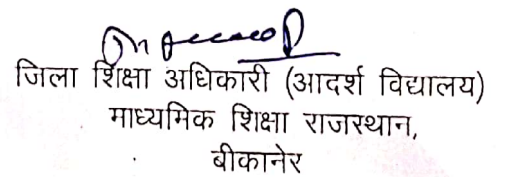 जिला शिक्षा अधिकारी (आदर्श विद्यालय)
माध्यमिक शिक्षा राजस्थान,
बीकानेर